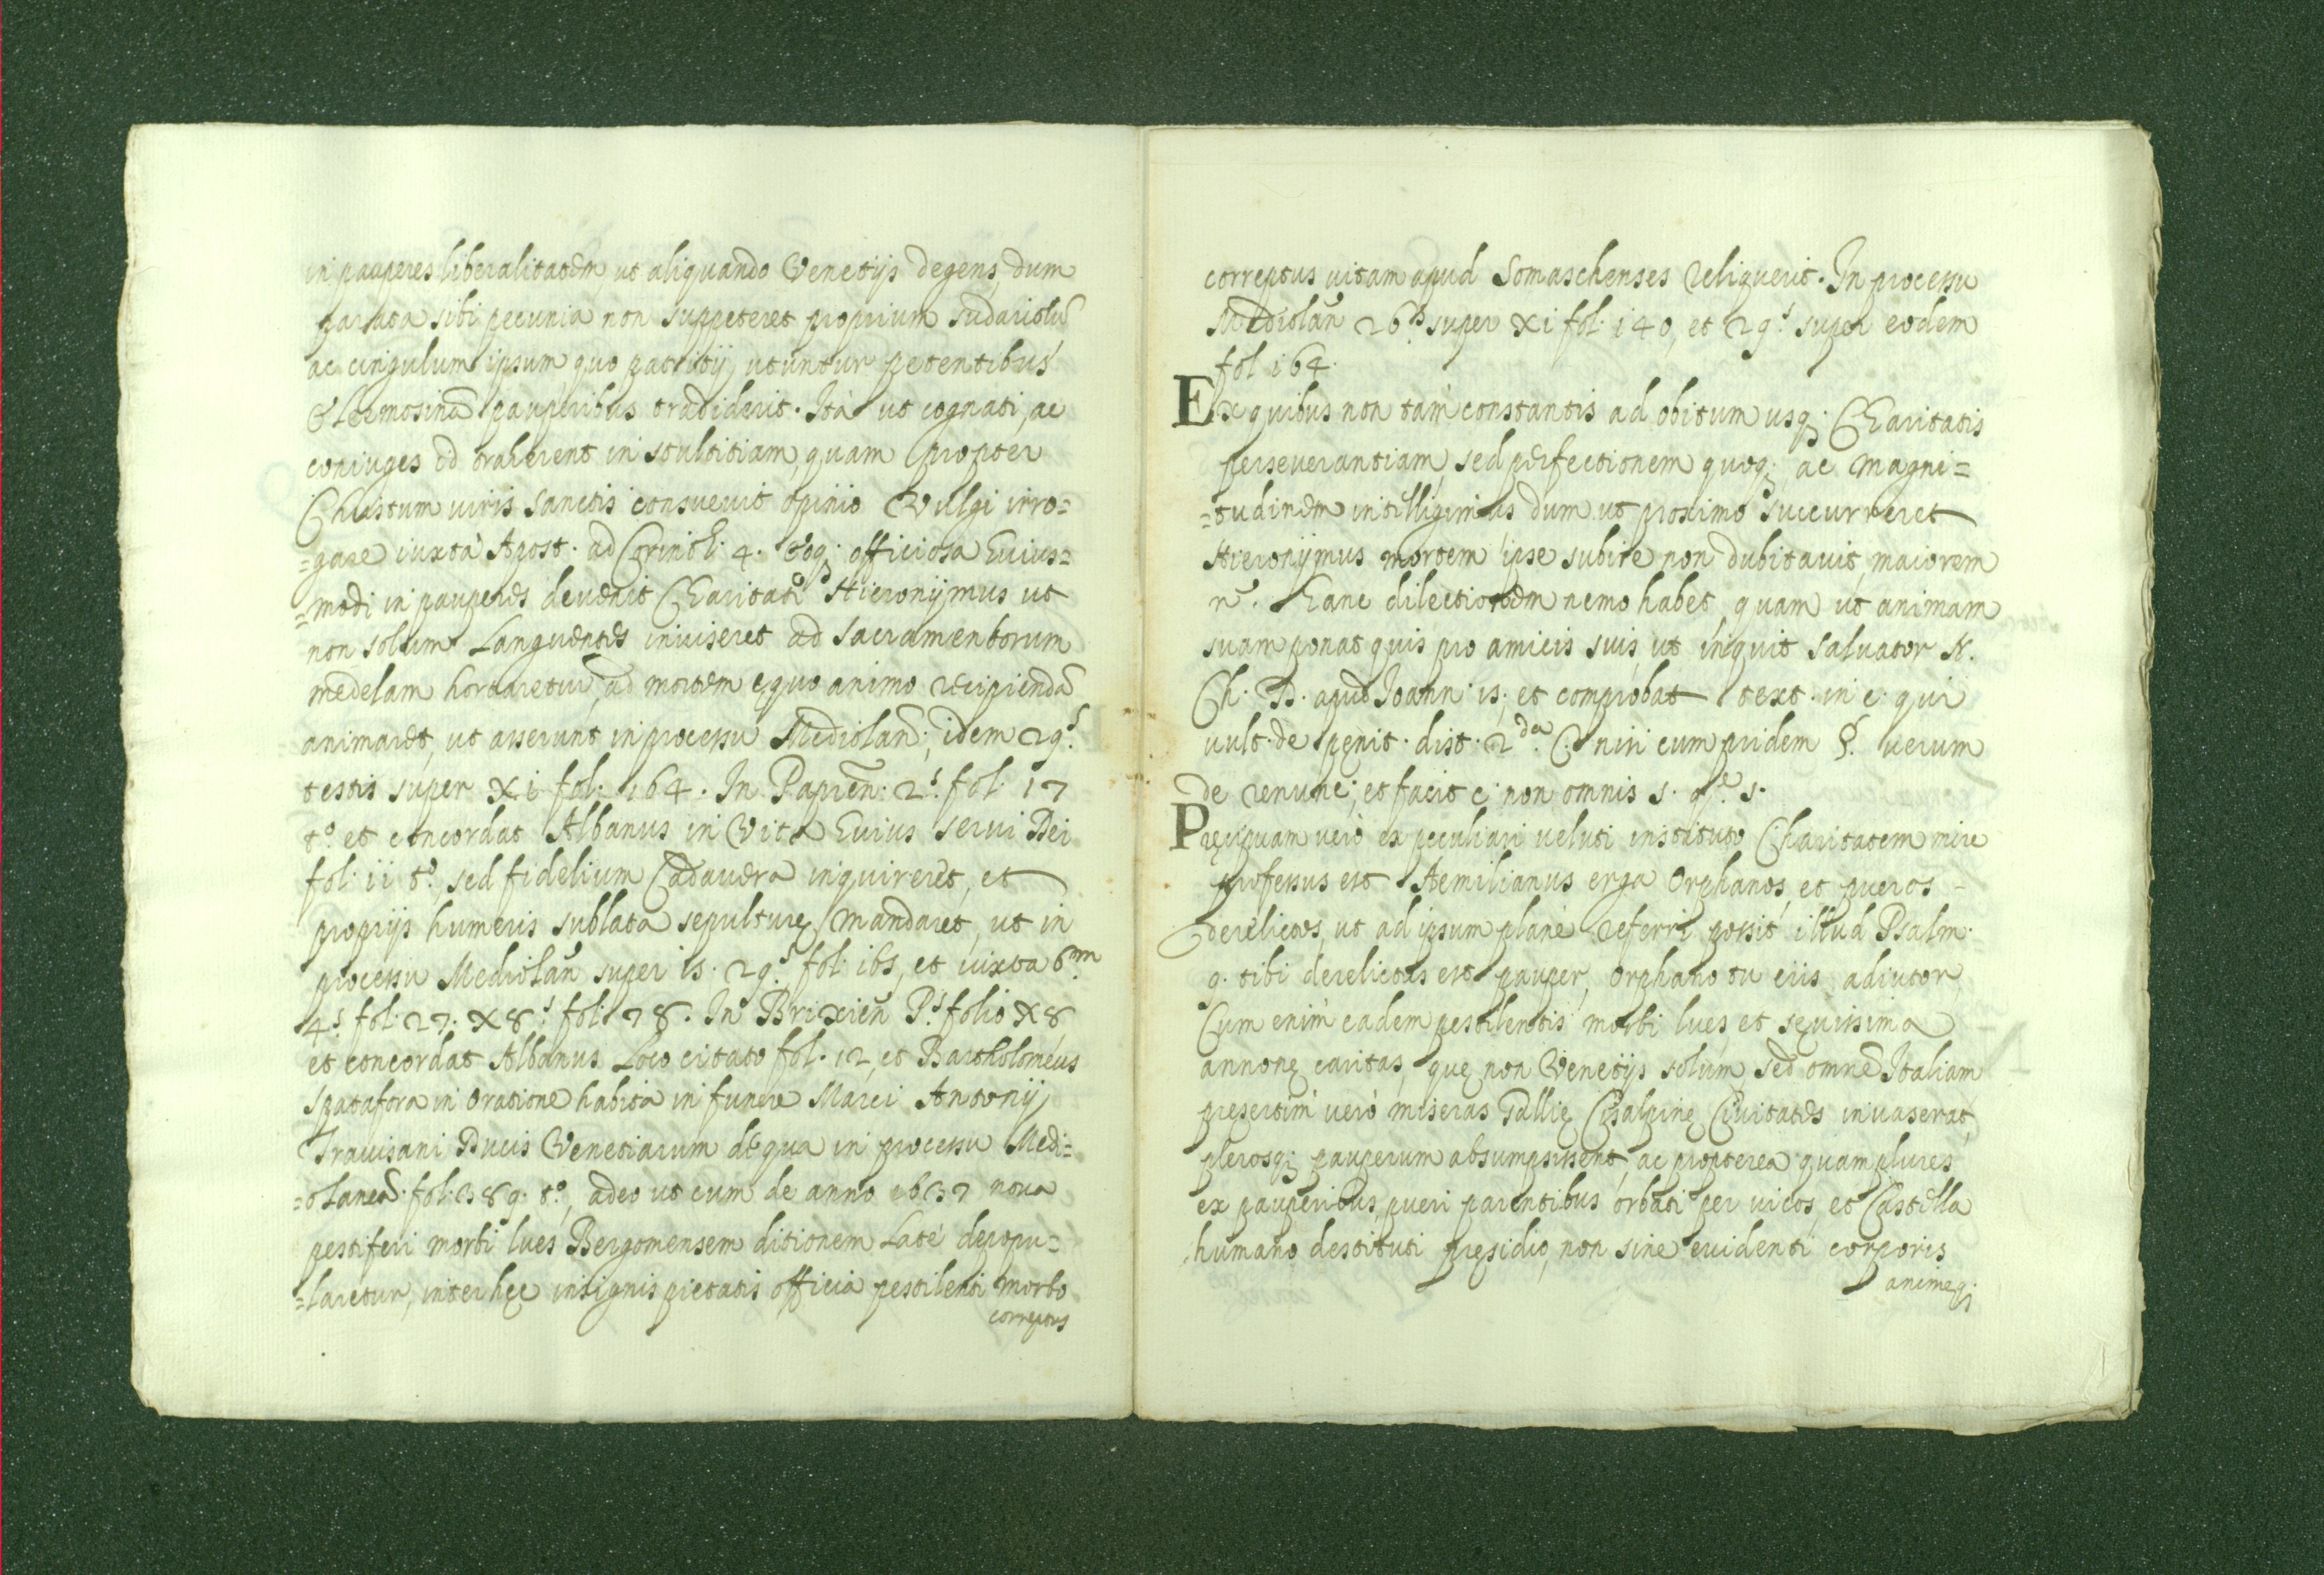 in pauperes liberalitatem, ut aliquando Venetijs degens, dum
parata sibi pecunia non suppeteret proprium sudariolũ
ac cingulum ipsum, quo patritij utuntur petentibus
Eleemosinã pauperibus tradiderit. Ità ut cognati, ac
coniuges id traherent in stultitiam, quam propter
Christum viris sanctis consuevit opinio Vulgi irro=
=gare iuxtà Apost. ad Corinth. 4. Eoq; officiosa huius=
=modi in pauperes devenit Charitate Hieronijmus ut
non solum Languentes inviseret ad sacramentorum
medelam hortaretur, ad mortem ęquo animo recipiendã
animaret, ut asserunt in processu Mediolañ; idem 29.s
testis super xi fol. 164. In Papień. 2.s fol. 17
t.o et concordat Albanus in Vita huius servi Dei
fol. ii t.o, sed fidelium Cadavera inquireret, et
proprijs humeris sublata sepulturę mandaret, ut in
processu Mediolañ super is. 29.s fol. ibs, et iuxta 6.m
4.s fol. 27. x8.s fol. 78. In Brixień P.s folio x8
et concordat Albanus Loco citato fol. 12, et Bartholoméus
Spatafora in Oratione habita in funere Marci Antonij
Travisani Ducis Venetiarum de qua in processu Medi=
=olaneñ. fol. 389. t.o, adeo ut cum de anno 1637 nova
pestiferi morbi lues Bergomensem ditionem Latè depopu=
=laretur, inter hęc insignis pietatis officia pestilenti morbo
correptus
correptus vitam apud Somaschenses reliquerit. In processu
Mediolañ 26.s super xi fol. 140, et 29.s super eodem
fol 164.
Ex quibus non tam constantis ad obitum usq; Charitatis
perseverantiam, sed perfectionem quoq; ac magni=
=tudinem intelligimus dum ut proximo succurreret
Hieronijmus mortem ipse subire non dubitavit, maiorem
n. hanc dilectionem nemo habet, quam ut animam
suam ponat quis pro amicis suis, ut inquit Salvator N.
Ch. D. apud Ioann. is; et comprobat text. in c. qui
vult. de pęnit. dist. 2.da C. niri cum pridem §. verum
de renunc; et facit c. non omnis s. q.e s.
Pręcipuam verò ex peculiari veluti instituto Charitatem mire
professus est Aemilianus erga Orphanos, et pueros -
derelictos, ut ad ipsum planè referri possit illud Psalm.
9. tibi derelictus est pauper, Orphano tu eris adiutor
Cum enim eadem pestilentis morbi lues, et sęvissima
annonę caritas, quę non Venetijs solùm, sed omnẽ Italiam
presertim verò miseras Gallię Cisalpinę Civitates invaserat,
plerosq; pauperum absumpsissent, ac propterea quamplures
ex pauperibus pueri parentibus orbati per vicos, et Castella
humano destituti pręsidio, non sine evidenti corporis
animeq;